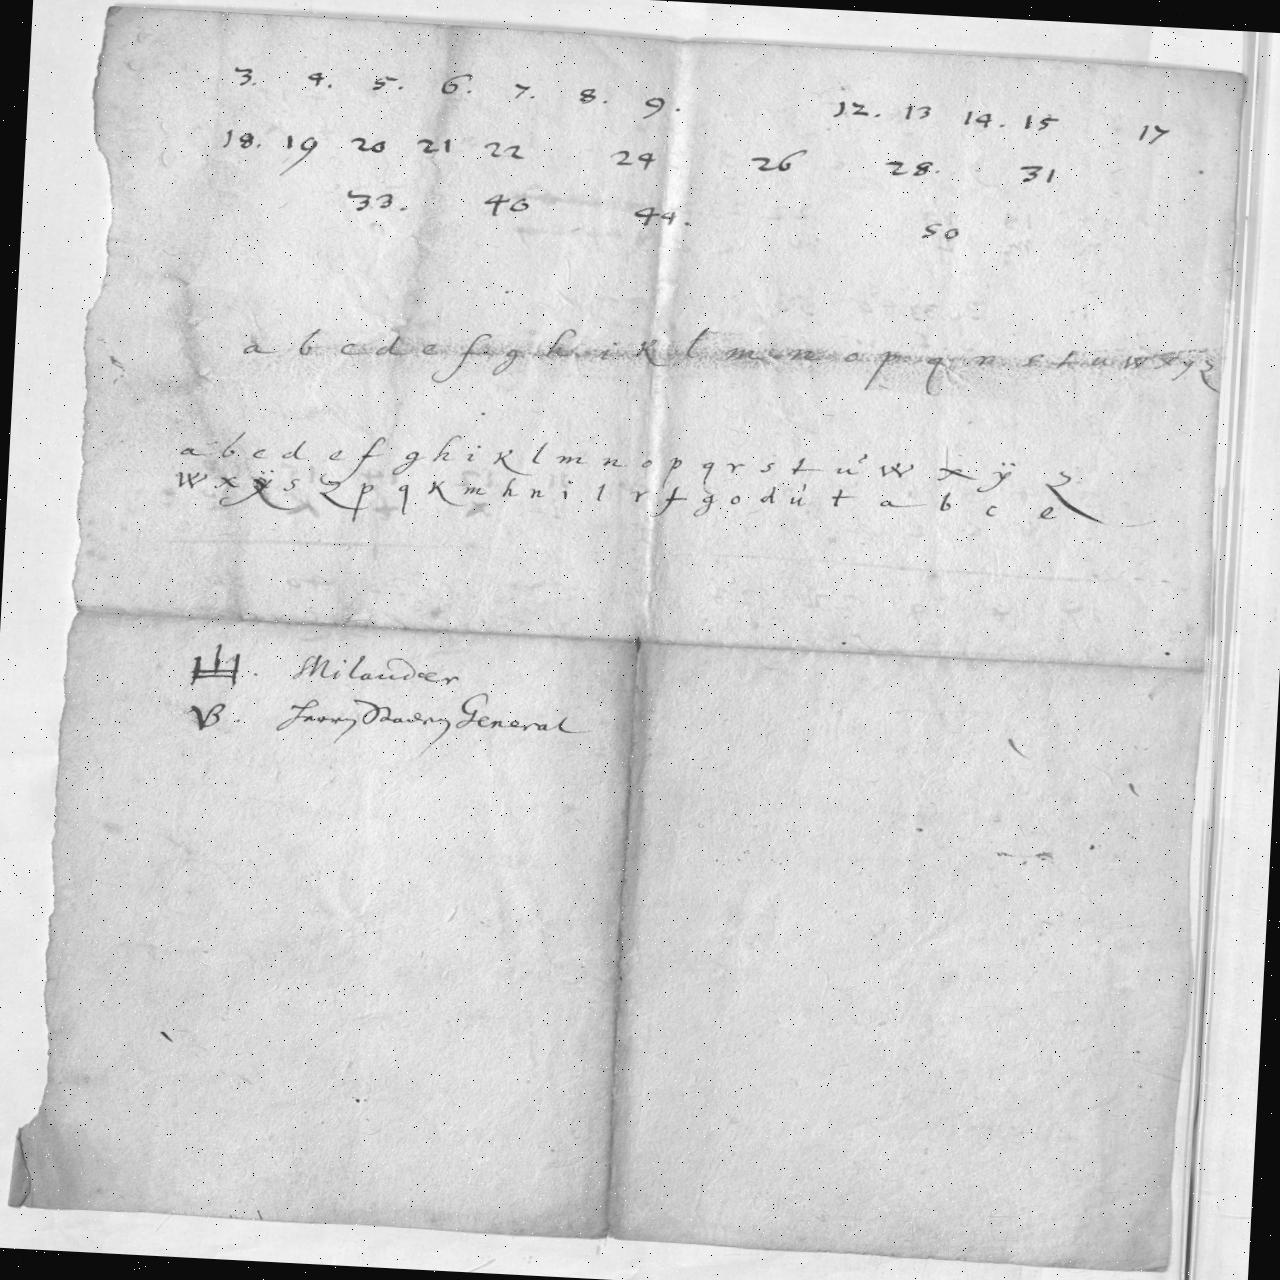 3. 4. 5. 6. 7. 8. 9. 12. 13 14. 15 17
18. 19 20 21 22 24 26 28. 31
33. 40 44. 50
a b c d e f g h i k l m n o p q r s t u w x y z
a b c d e f g h i k l m n o p q r s t ú w x ÿ z
w x ÿ s z p q k m h n i l r f g o d ú t a b c e
Milander
B. General